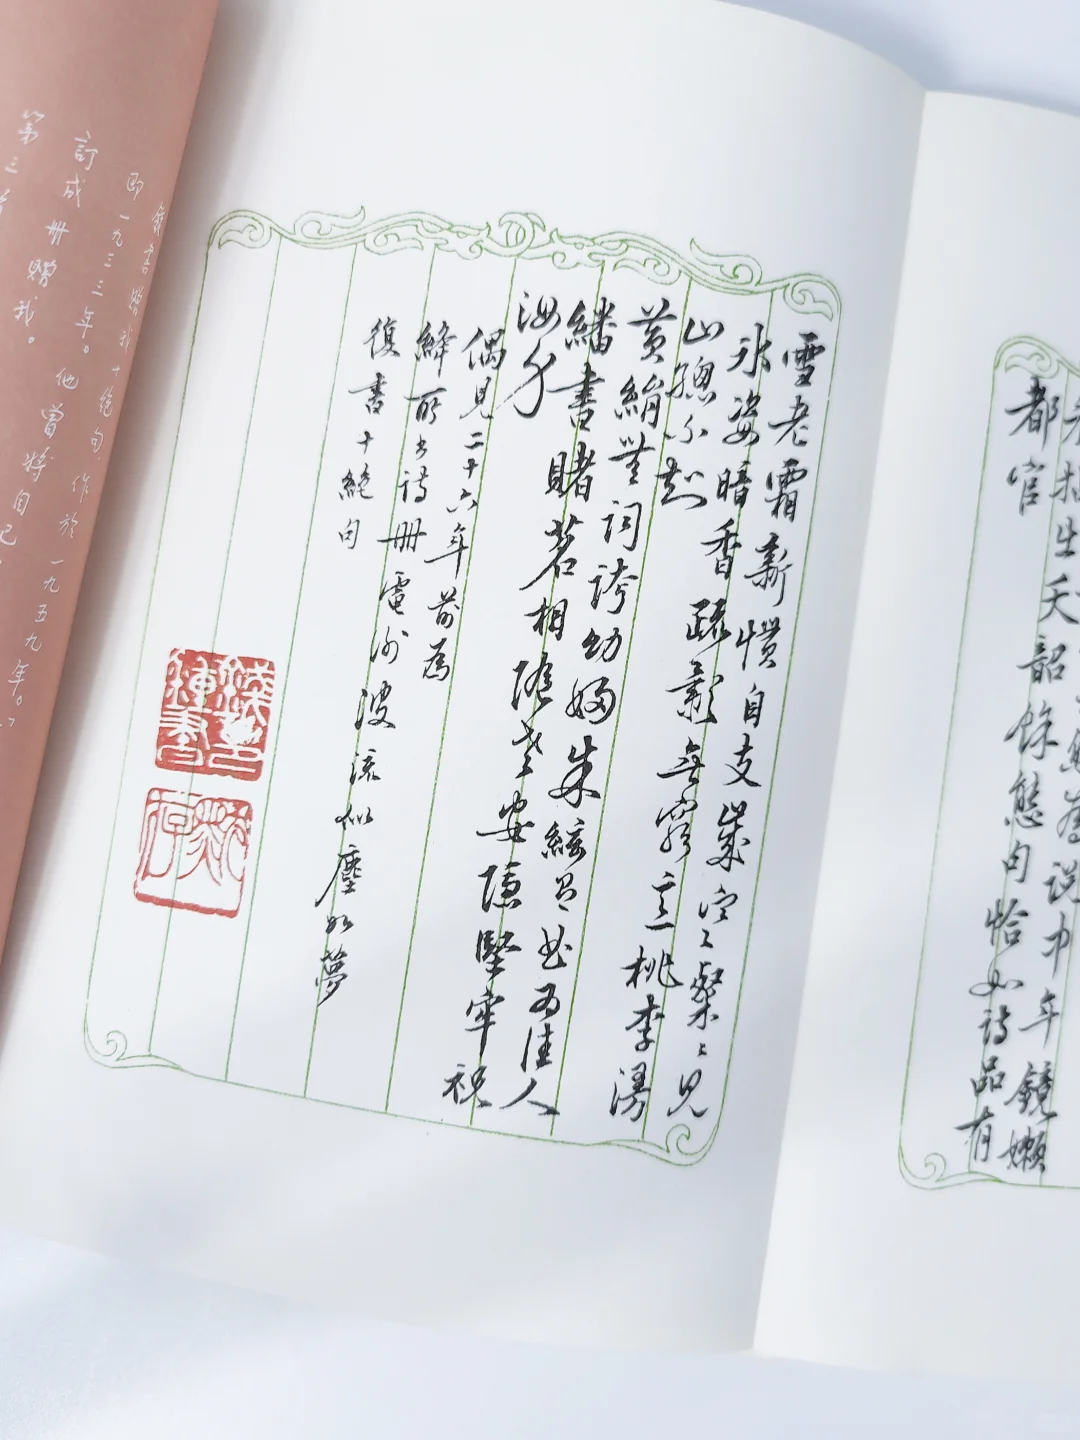 說中年鏡嬾
韶餘態句恰如詩品有
都官
雪老霜新慣自支歲寒粲粲見
冰姿暗香疏影無窮意桃李漫
山總不知
黃絹無詞誇幼婦朱絃曲為佳人
繙書賭茗相隨老安隱堅牢祝
汝身
偶見二十六年前為
絳所書詩册電謝波流似塵如夢
復書十絕句
錢鍾書
默存
鍾書贈我十絕句，作於一九五九年。
即一九三三年。他曾將自己
訂成册贈我。
第三